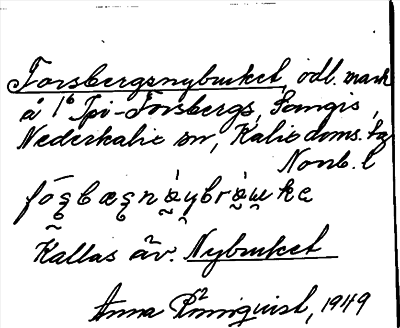 Forsbergsnybruket, odl. mark
å 1⁶ Tpi-Forsbergs, Sangis,
Nederkalix sn, Kalix doms. hg
Norrb. l
Kallas äv. Nybruket
Anna Rönnqvist, 1949